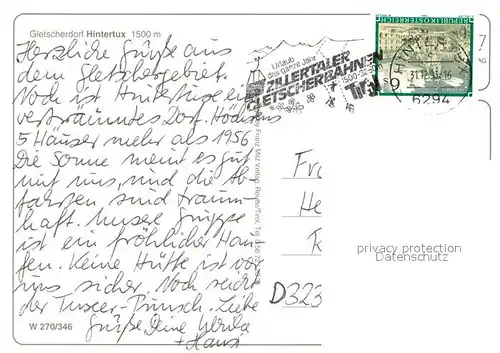 Gletscherdorf Hintertux 1500 m
Herzliche Grüße aus
dem Gletschergebiet.
Noch ist Hintertux ein
verträumtes Dorf. Höchstens
5 Häuser mehr als 1956
Die Sonne meint es gut
mit uns, und die Ab
fahrten, sind traum-
haft. Unsere Gruppe
ist ein fröhlicher Hau
fen. Keine Hütte ist vor
uns sicher. Noch reicht
der Tuxer-Punsch. Liebe
Grüße Deine
+ Hansi
W 270/346
Urlaub
das ganze Jahr
ZILLERTALER
GLETSCHERBAHNEN
Tirol
REPUBLIK ÖSTERREICH
6294
Fr
He
D323
privacy protection
Datenschutz